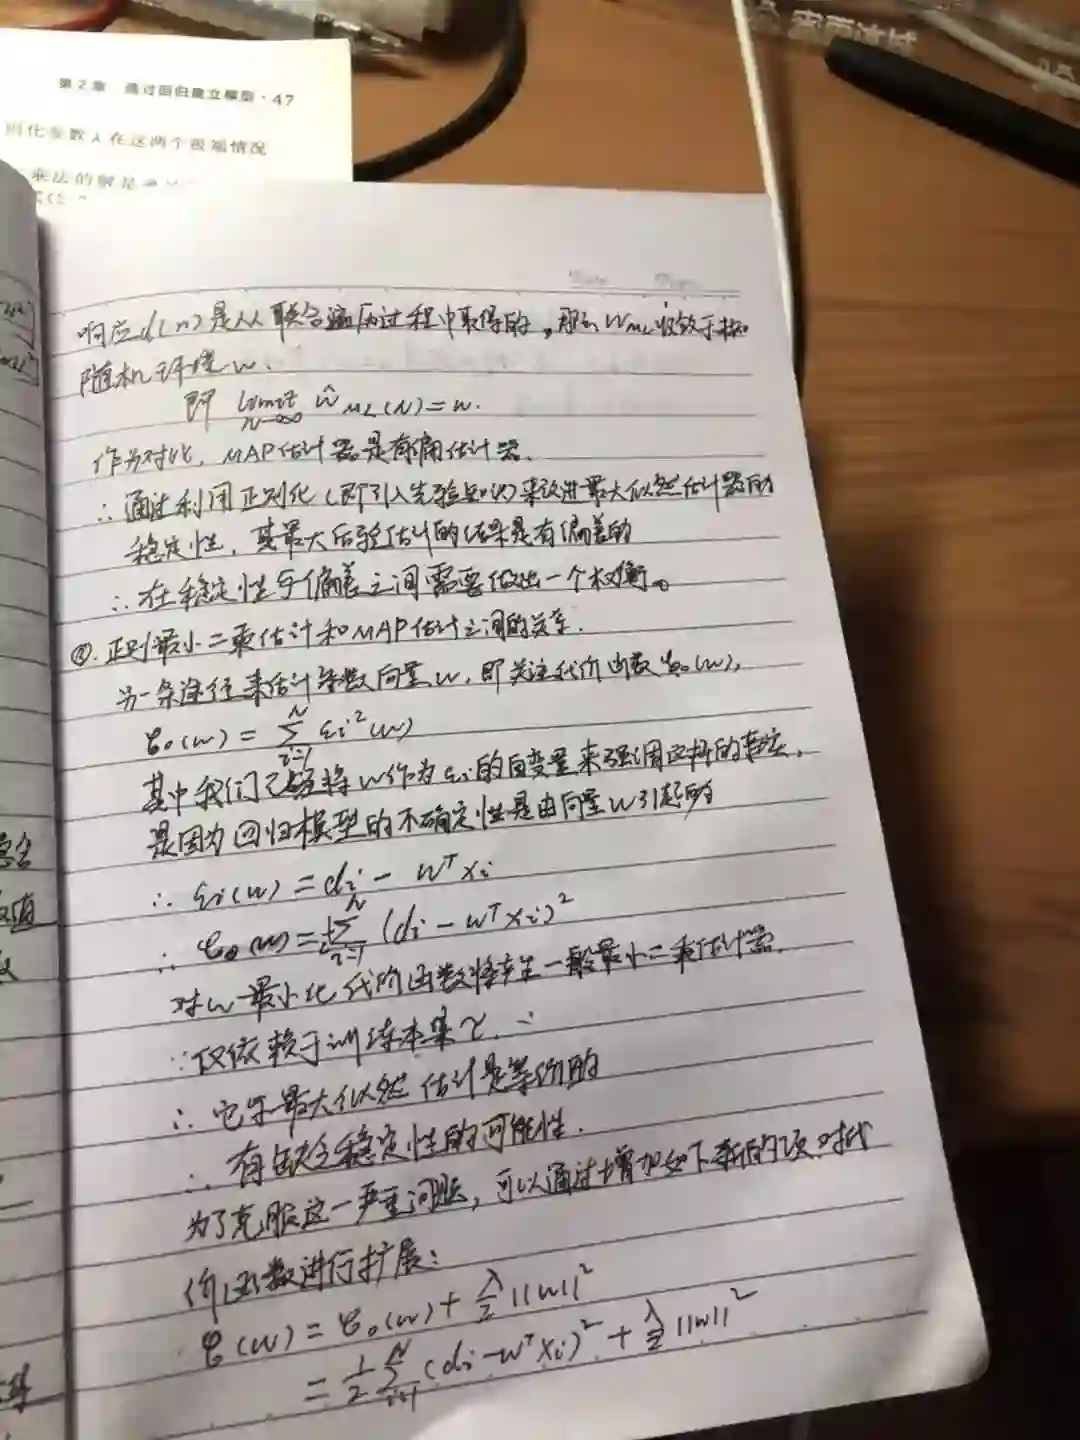 第2章 通过回归建立模型·47
则化参数λ在这两个极端情况
乘法的解是
响应d(n)是从联合遍历过程中取得的,那么W_ML收敛于
随机环境w.
即 limit_{N→∞} ŵ_ML(N)=w.
作为对比, MAP估计器是有偏估计器.
∴通过利用正则化(即引入先验知识)来改进最大似然估计器的
稳定性, 其最大后验估计的结果是有偏差的
∴在稳定性与偏差之间需要做出一个权衡。
正则最小二乘估计和MAP估计之间的关系.
另一条途径来估计参数向量w, 即关注代价函数ℰ₀(w),
ℰ₀(w) = Σ_{i=1}^{N} εi²(w)
其中我们已经将w作为εi的自变量来强调这样的事实,
是因为回归模型的不确定性是由向量w引起的
∴ εi(w) = di - wᵀxi
∴ ℰ₀(w) = ½Σ_{i=1}^{N} (di - wᵀxi)²
对w最小化代价函数将产生一般最小二乘估计器.
∵仅依赖于训练本集τ. ∴
∴ 它与最大似然估计是等价的
∴ 有缺乏稳定性的可能性.
为了克服这一严重问题, 可以通过增加如下新的项对代
价函数进行扩展:
ℰ(w) = ℰ₀(w) + λ/2 ||w||²
= 1/2 Σ_{i=1}^{N} (di-wᵀxi)² + λ/2 ||w||²